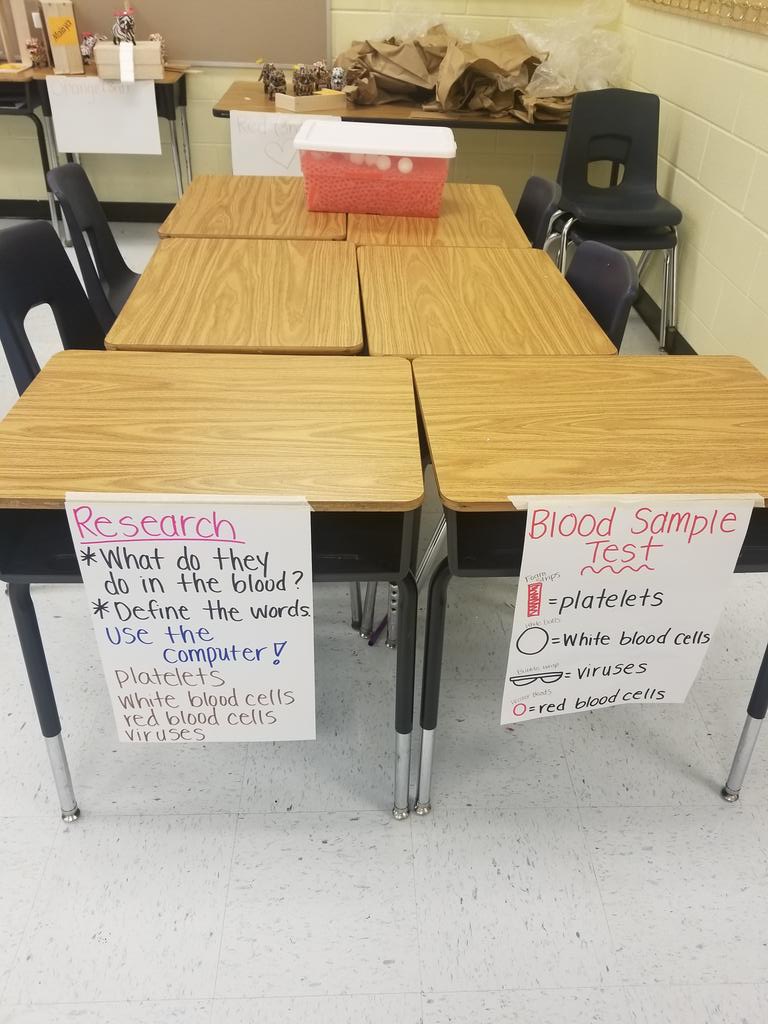 Research
*What do they
do in the blood?
*Define the words
use the
computer!
platelets
white blood cells
red blood cells
viruses
Blood Sample
Test
Foam strips
=platelets
white balls
=White blood cells
=viruses
Water Beads
=red blood cells